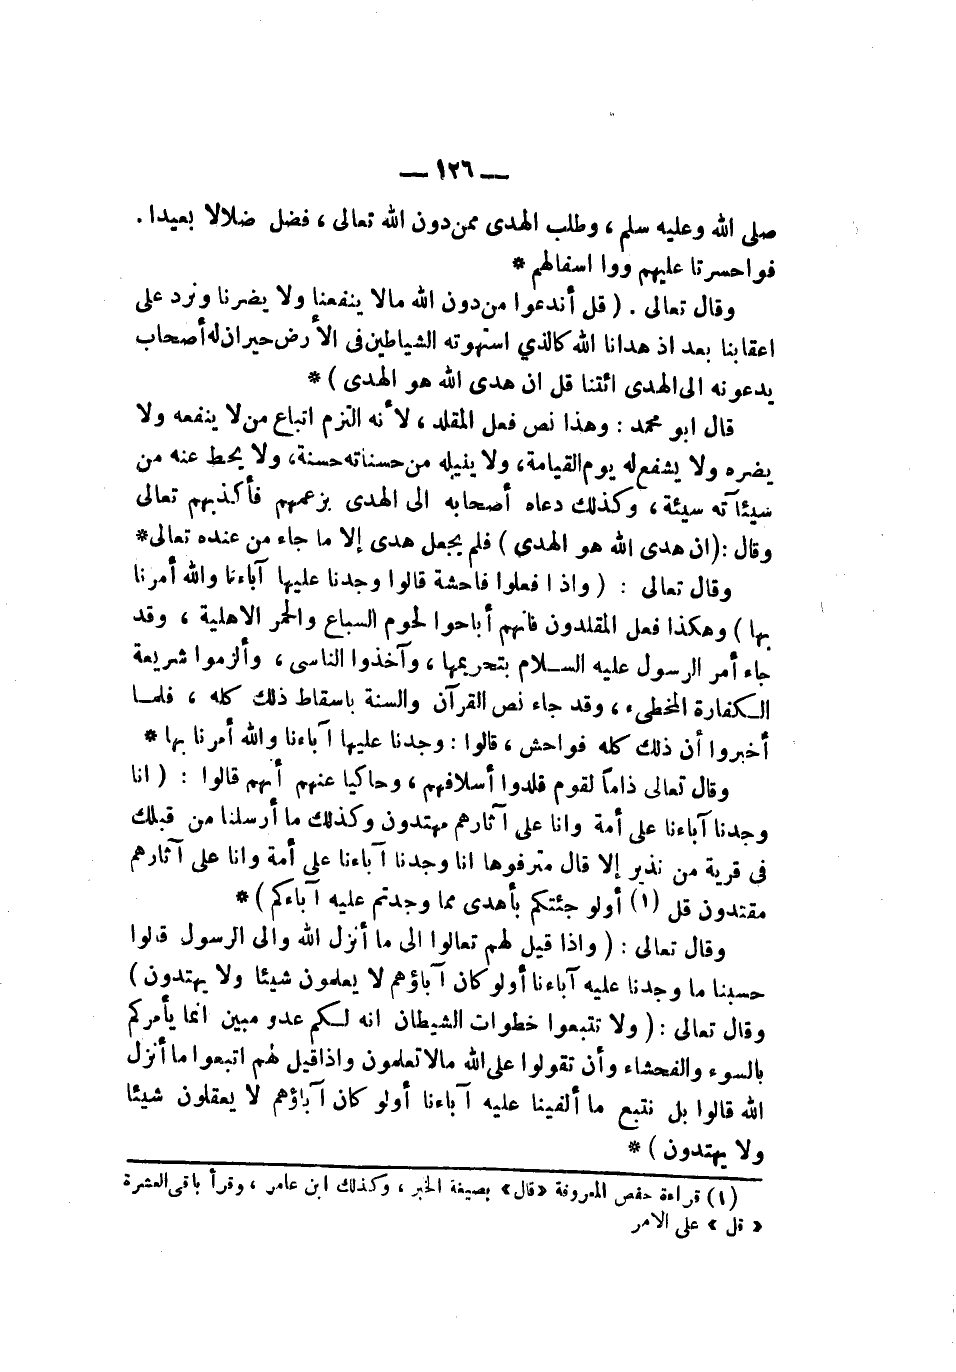 — ١٢٦ —
صلى الله وعليه سلم ، وطلب الهدى ممن دون الله تعالى ، فضل ضلالا بعيدا .
فواحسرتا عليهم ووا اسفالهم *
وقال تعالى . ( قل أندعوا من دون الله مالا ينفعنا ولا يضرنا ونرد على
اعقابنا بعد اذ هدانا الله كالذي استهوته الشياطين فى الأرض حيران له أصحاب
يدعونه الى الهدى ائتنا قل ان هدى الله هو الهدى ) *
قال ابو محمد : وهذا نص فعل المقلد ، لأنه التزم اتباع من لا ينفعه ولا
يضره ولا يشفع له يوم القيامة ، ولا ينيله من حسناته حسنة ، ولا يحط عنه من
سيئاته سيئة ، وكذلك دعاه أصحابه الى الهدى بزعمهم فأكذبهم تعالى
وقال : (ان هدى الله هو الهدى ) فلم يجعل هدى إلا ما جاء من عنده تعالى *
وقال تعالى : ( واذا فعلوا فاحشة قالوا وجدنا عليها آباءنا والله أمرنا
بها ) وهكذا فعل المقلدون فانهم أباحوا لحوم السباع والحمر الاهلية ، وقد
جاء أمر الرسول عليه السلام بتحريمها ، وآخذوا الناسى ، وألزموا شريعة
الكفارة المخطىء ، وقد جاء نص القرآن والسنة باسقاط ذلك كله ، فلما
أخبروا أن ذلك كله فواحش ، قالوا : وجدنا عليها آباءنا والله أمرنا بها *
وقال تعالى ذاماً لقوم قلدوا أسلافهم ، وحاكيا عنهم أنهم قالوا : ( انا
وجدنا آباءنا على أمة وانا على آثارهم مهتدون وكذلك ما أرسلنا من قبلك
فى قرية من نذير إلا قال مترفوها انا وجدنا آباءنا على أمة وانا على آثارهم
مقتدون قل (١) أولو جئتكم بأهدى مما وجدتم عليه آباءكم ) *
وقال تعالى : ( واذا قيل لهم تعالوا الى ما أنزل الله والى الرسول قالوا
حسبنا ما وجدنا عليه آباءنا أولو كان آباؤهم لا يعلمون شيئا ولا يهتدون )
وقال تعالى : ( ولا تتبعوا خطوات الشيطان انه لكم عدو مبين انما يأمركم
بالسوء والفحشاء وأن تقولوا على الله مالا تعلمون واذا قيل لهم اتبعوا ما أنزل
الله قالوا بل نتبع ما ألفينا عليه آباءنا أولو كان آباؤهم لا يعقلون شيئا
ولا يهتدون ) *
(١) قراءة حفص المعروفة «قال» بصيغة الخبر ، وكذلك ابن عامر ، وقرأ باقى العشرة
« قل » على الامر